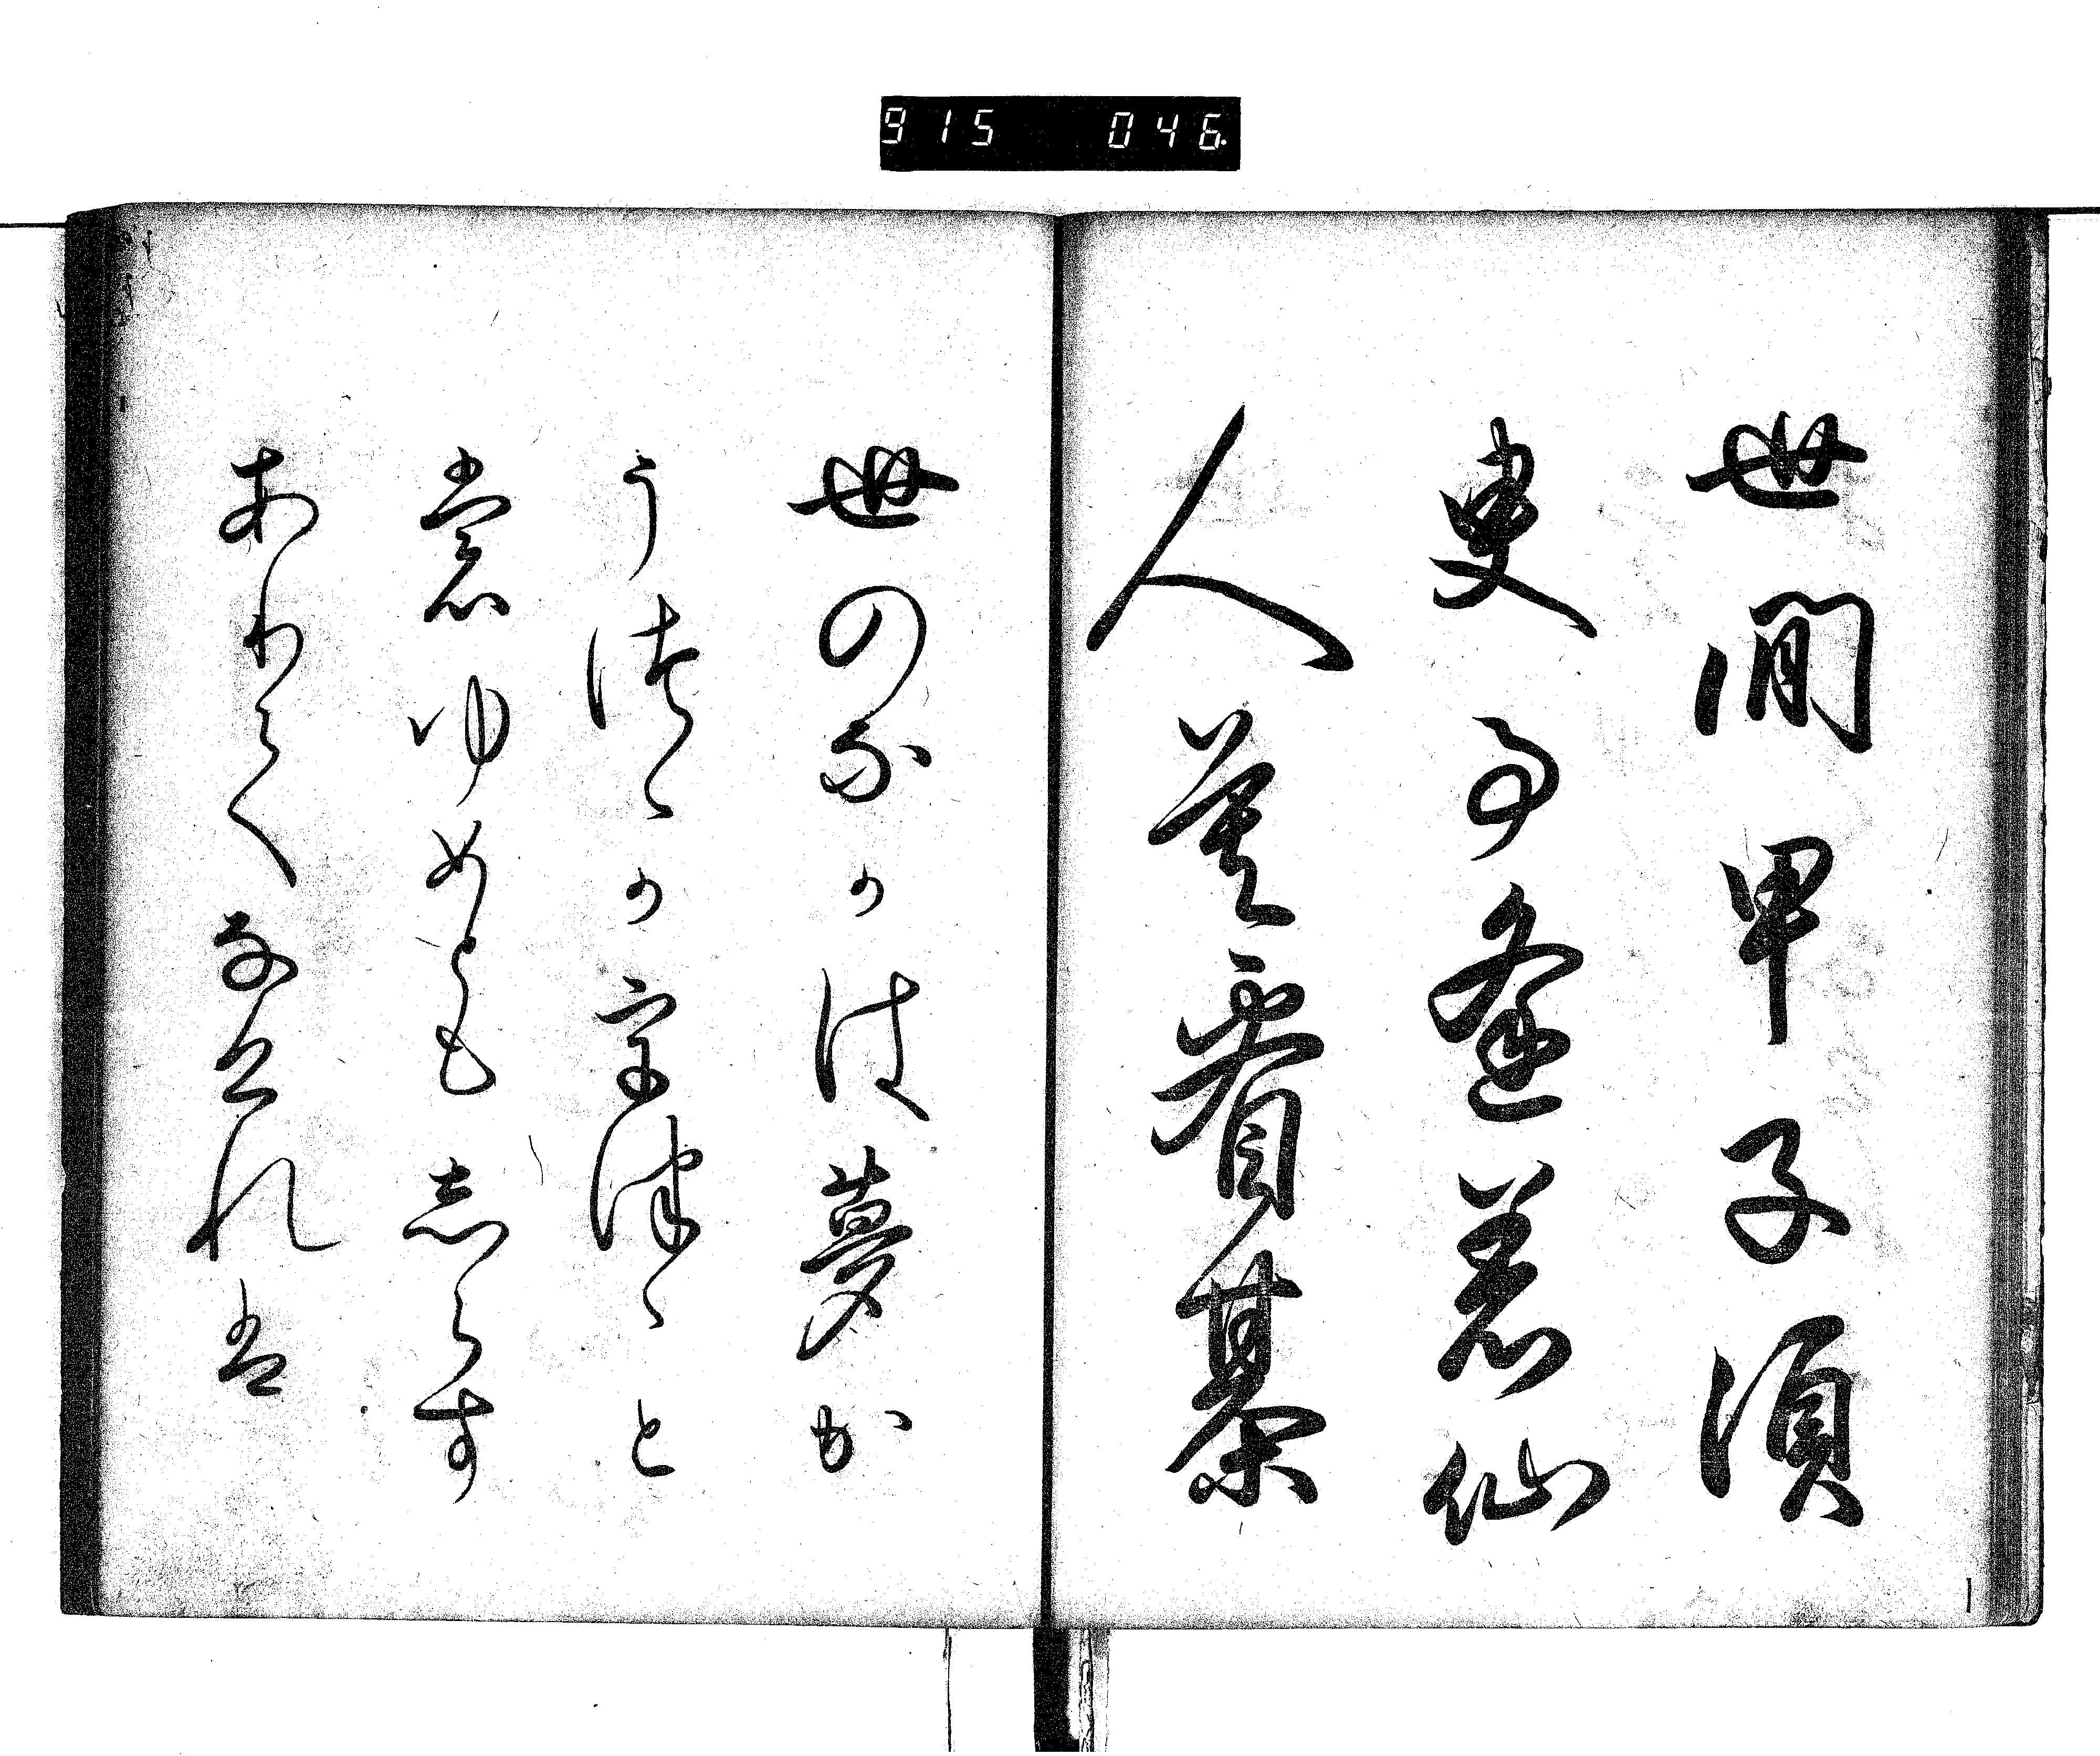 915 046
世間甲子須
臾事逢着仙
人莫看棊
世のなかは夢か
うつゝかうつゝと
もゆめともしらす
ありてなけれは